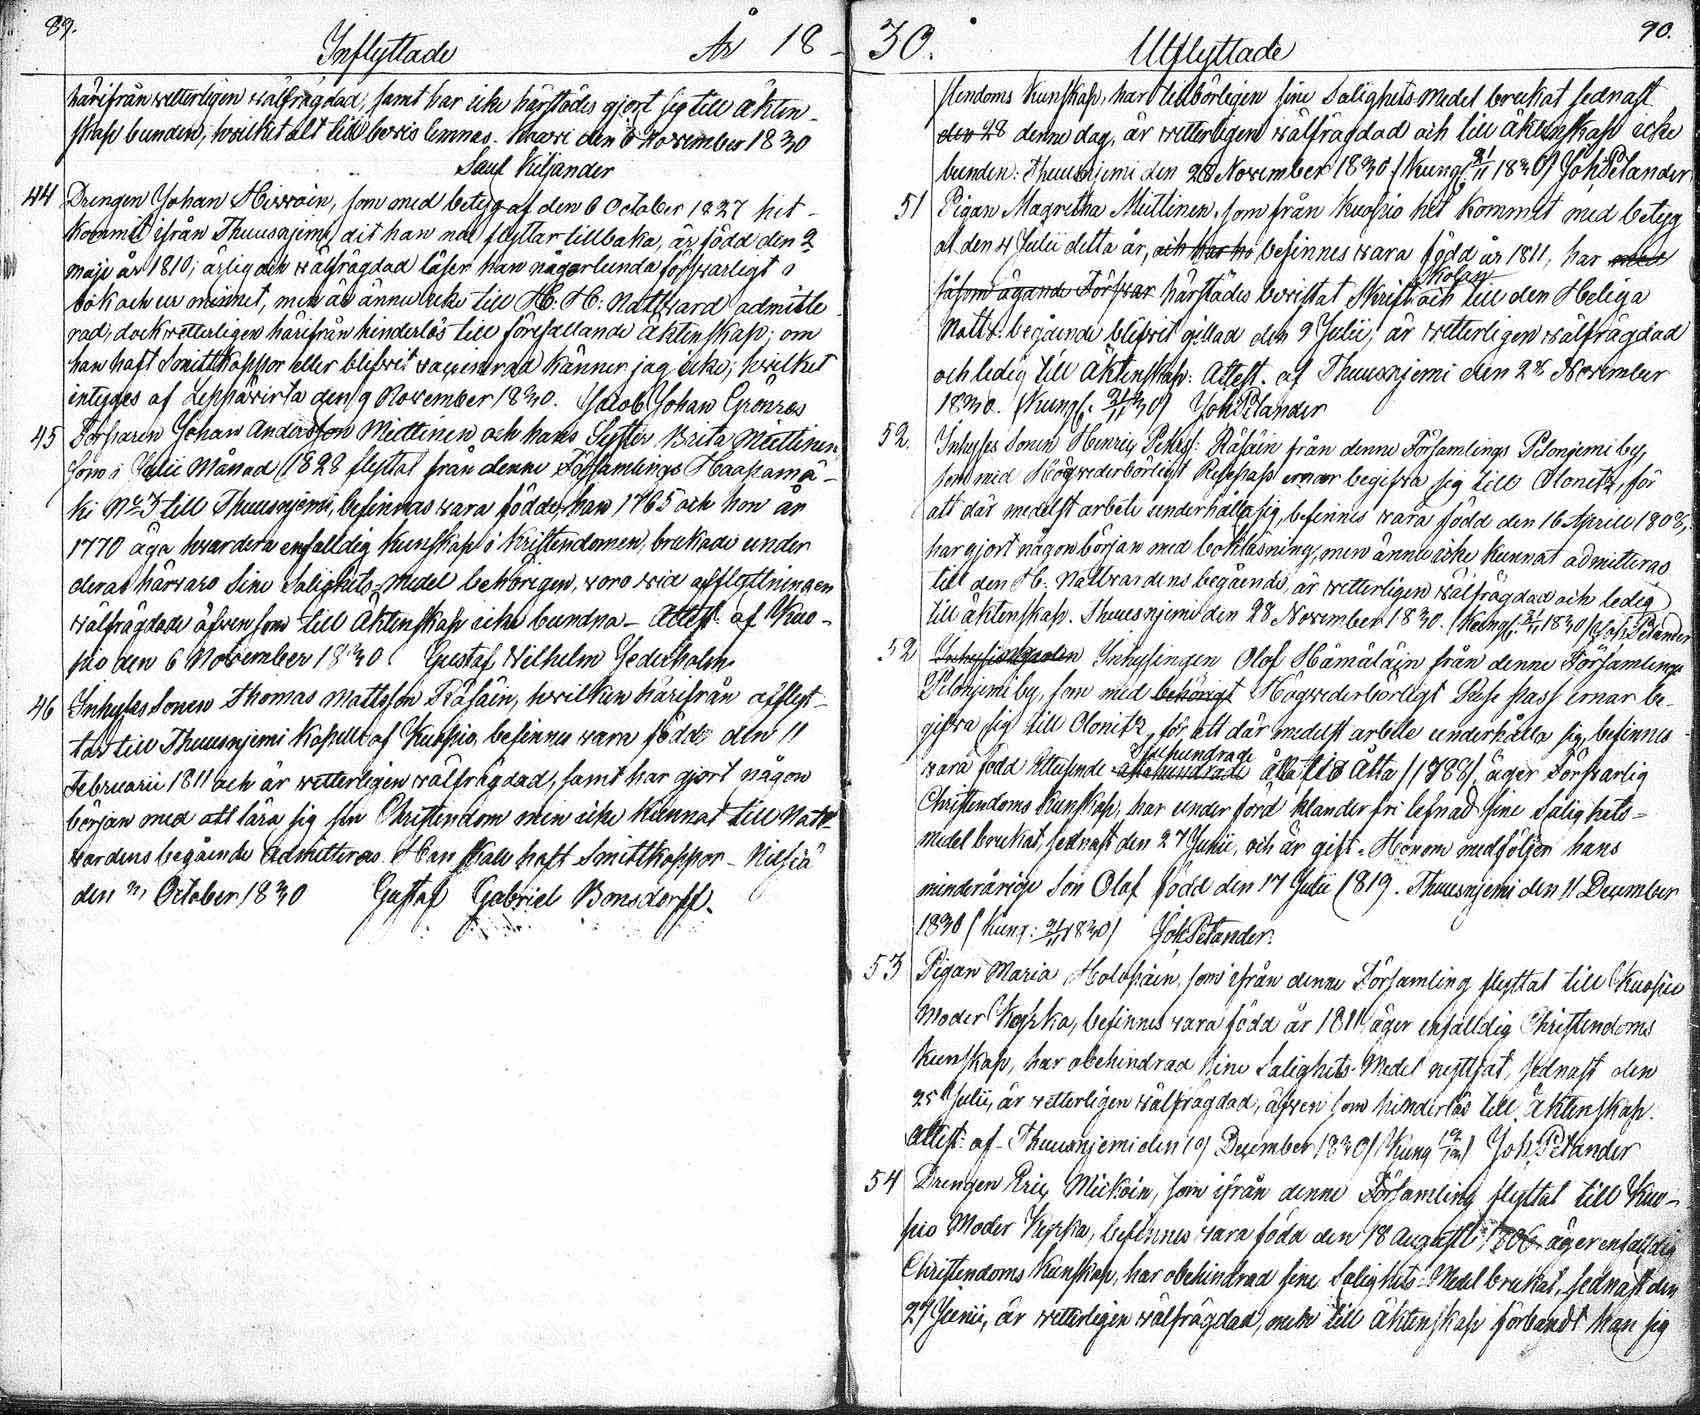 89.
Inflyttade År 18
härifrån wetterligen wälfrägdad; samt har icke härstädes gjort sig till äkten-
skap bunden, hwilket alt till bewis lemnas. den 6 November 1830
Saul Kiljander
44 Drengen Johan Hirwoin, som med betyg af den 6 October 1827 hit-
kommit ifrån Thuusnjemi, dit han nu flyttar tillbaka, är född den 2
maji år 1810; ärlig och wälfrägdad läser han någorlunda förswarligt i
bok och ur minnet, men är ännu icke till H. H. Nattvard admitte
rad; dock wetterligen härifrån hinderlös till förefallande äktenskap; om
han haft Smittkoppor eller blifwit vaccinerad känner jag icke; hwilket
intygas af Leppäwirta den 9 November 1830. Jacob Johan Grönroos
45 Torparen Johan Andersson Miettinen och hans Syster Brita Miettinen
som i Julii Månad 1828 flyttat från denne Församlings Haapamä-
ki No 3 till Thuusnjemi, befinnas wara födde, han 1765 och hon år
1770 äga hwardera enfalldig kunskap i Kristendomen, brukade under
deras härwaro Sine Salighets-medel behörigen, woro wid afflyttningen
wälfrägdade äfwen som till Äktenskap icke bundna - Attest. af Kuo-
pio den 6 November 1830 Gustaf Wilhelm Zederholm
46 Inhyses Sonen Thomas Mattsson Räsäin, hwilken härifrån afflyt-
tar till Thuusnjemi Kapell af Kuopio, befinnes wara född den 11
Februarii 1811 och är wetterligen wälfrägdad, samt har gjort någon
början med att lära sig sin Christendom men icke kunnat till Natt-
wardens begående admitteras. Han skall haft Smittkoppor - Nilsiä
den October 1830 Gustaf Gabriel Bonsdorff.
30. Utflyttade 90.
stendoms Kunskap, har tillbörligen sine Salighets-Medel brukat sednast
den 28 denne dag, är wetterligen wälfrägdad och till äktenskap icke
bunden: Thuusnjemi den 28 November 1830 / Kung. 21/11 1830/ Joh. Petander
51 Pigan Magretha Miettinen, som från Kuopio hit kommit med betyg
af den 4 Julii detta år, och har ho befinnes wara född år 1811, har
såsom ägande Förswar härstädes bewistat Skrift skolan och till den Heliga
Nattv: begående blifwit gillad den 9 Julii, är wetterligen wälfrägdad
och ledig till Äktenskap: Attest. af Thuusnjemi den 28 November
1830. (Kung. 21/11 30) Joh. Petander
52. Inhyses Sonen Henric Pehrss: Räsäin från denne Församlings Pelonjemi by,
som med Högwederbörligt Resepass ernar begifva sig till Olonitz, för
att där medelst arbete underhålla sig, befinnes wara född den 16 Aprill 1808,
har gjort någon början med bokläsning, men ännu icke kunnat admitteras
till den H. Nattwardens begående, är wetterligen wälfrägdad och ledig
till äktenskap. Thuusnjemi den 28 November 1830. (Kung. 21/11 1830) Joh. Petander
52 Inhyses Inhysingen Olof Hämäläin från denne Församlings
Pelonjemi by, som med behörigt Högwederbörligt Rese pass ernar be-
gifva sig till Olonitz för att där medelst arbete underhålla sig, befinnes
wara född Ettusende åttahundrade Sjuhundrade åttatio åtta /1788/, äger Förswarlig
Christendoms Kunskap, har under förd klander fri lefnad sine Salighets-
medel brukat, sednast den 27 Junii, och är gift. Honom medföljer hans
minderårige Son Olof född den 17 Julii 1819. Thuusnjemi den 11 December
1830 / Kung: 21/11 1830/ Joh. Petander.
53 Pigan Maria Holopain, som ifrån denne Församling flyttat till Kuopio
Moder Kyrka, befinnes wara född år 1811 äger enfalldig Christendoms
kunskap, har obehindrad sine Salighets-Medel nyttjat, sednast den
25 Julii, är wetterligen wälfrägdad, äfwen som hinderlös till äktenskap.
Attest: af Thuusnjemi den 19 December 1830 / Kung / Joh. Petander
54 Drengen Eric Mickoin, som ifrån denne Församling flyttat till Kuo-
pio Moder Kyrka, befinnes wara född den 18 Augusti 1806, äger enfalldig
Christendoms Kunskap, har obehindrad sine Salighets-Medel brukat, sednast den
27 Junii, är wetterligen wälfrägdad, men till äktenskap förbandt han sig